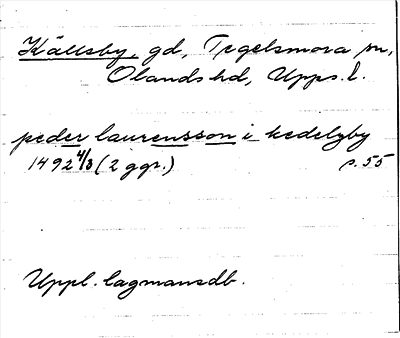 Källsby, gd, Tegelsmora sn,
Olands hd, Upps. l.
peder laurensson i kedelzby
1492 4/3 (2 ggr.) s. 55
Uppl. lagmansdb.